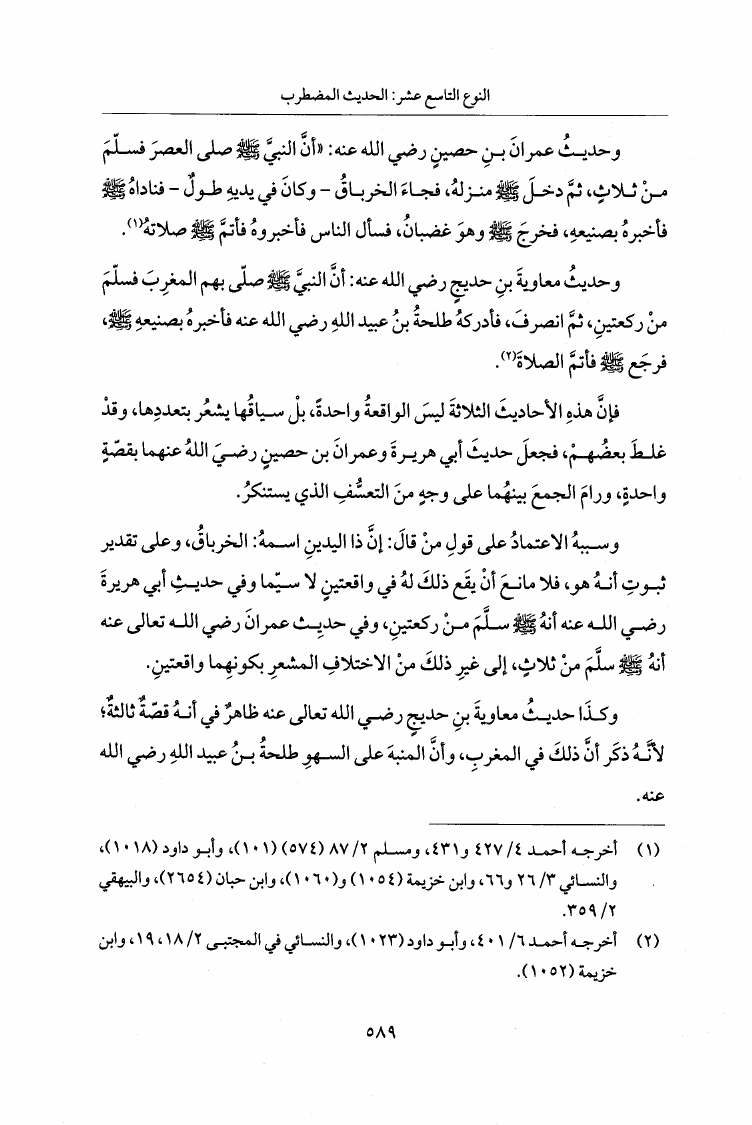 النوع التاسع عشر: الحديث المضطرب
وحديثُ عمرانَ بنِ حصينٍ رضي الله عنه: «أنَّ النبيَّ ﷺ صلى العصرَ فسلّمَ
منْ ثلاثٍ، ثمَّ دخلَ ﷺ منزلهُ، فجاءَ الخرباقُ - وكانَ في يديهِ طولٌ - فناداهُ ﷺ
فأخبرهُ بصنيعهِ، فخرجَ ﷺ وهوَ غضبانُ، فسأل الناس فأخبروهُ فأتمَّ ﷺ صلاتهُ(١).
وحديثُ معاويةَ بنِ حديجٍ رضي الله عنه: أنَّ النبيَّ ﷺ صلّى بهم المغربَ فسلّمَ
منْ ركعتينِ، ثمَّ انصرفَ، فأدركهُ طلحةُ بنُ عبيد اللهِ رضي الله عنه فأخبرهُ بصنيعهِ ﷺ،
فرجَع ﷺ فأتمَّ الصلاةَ(٢).
فإنَّ هذهِ الأحاديثَ الثلاثةَ ليسَ الواقعةُ واحدةً، بلْ سياقُها يشعُر بتعددِها، وقدْ
غلطَ بعضُهمْ، فجعلَ حديثَ أبي هريرةَ وعمرانَ بن حصينٍ رضيَ اللهُ عنهما بقصّةٍ
واحدةٍ، ورامَ الجمعَ بينهُما على وجهٍ منَ التعسُّفِ الذي يستنكرُ.
وسببهُ الاعتمادُ على قولِ منْ قالَ: إنَّ ذا اليدينِ اسمهُ: الخرباقُ، وعلى تقدير
ثبوتِ أنهُ هو، فلا مانعَ أنْ يقَع ذلكَ لهُ في واقعتينِ لا سيّما وفي حديثِ أبي هريرةَ
رضي الله عنه أنهُ ﷺ سلَّمَ منْ ركعتينِ، وفي حديِث عمرانَ رضي الله تعالى عنه
أنهُ ﷺ سلَّمَ منْ ثلاثٍ، إلى غيرِ ذلكَ منْ الاختلافِ المشعرِ بكونِهِما واقعتينِ.
وكذَا حديثُ معاويةَ بنِ حديجٍ رضي الله تعالى عنه ظاهرٌ في أنهُ قصّةٌ ثالثةٌ؛
لأنَّهُ ذكَر أنَّ ذلكَ في المغربِ، وأنَّ المنبهَ على السهوِ طلحةُ بنُ عبيد اللهِ رضي الله
عنه.
(١) أخرجه أحمد ٤/ ٤٢٧ و٤٣١، ومسلم ٢/ ٨٧ (٥٧٤) (١٠١)، وأبو داود (١٠١٨)،
والنسائي ٣/ ٢٦ و٦٦، وابن خزيمة (١٠٥٤) و(١٠٦٠)، وابن حبان (٢٦٥٤)، والبيهقي
٢/ ٣٥٩.
(٢) أخرجه أحمد ٦/ ٤٠١، وأبو داود (١٠٢٣)، والنسائي في المجتبى ٢/ ١٨، ١٩، وابن
خزيمة (١٠٥٢).
٥٨٩